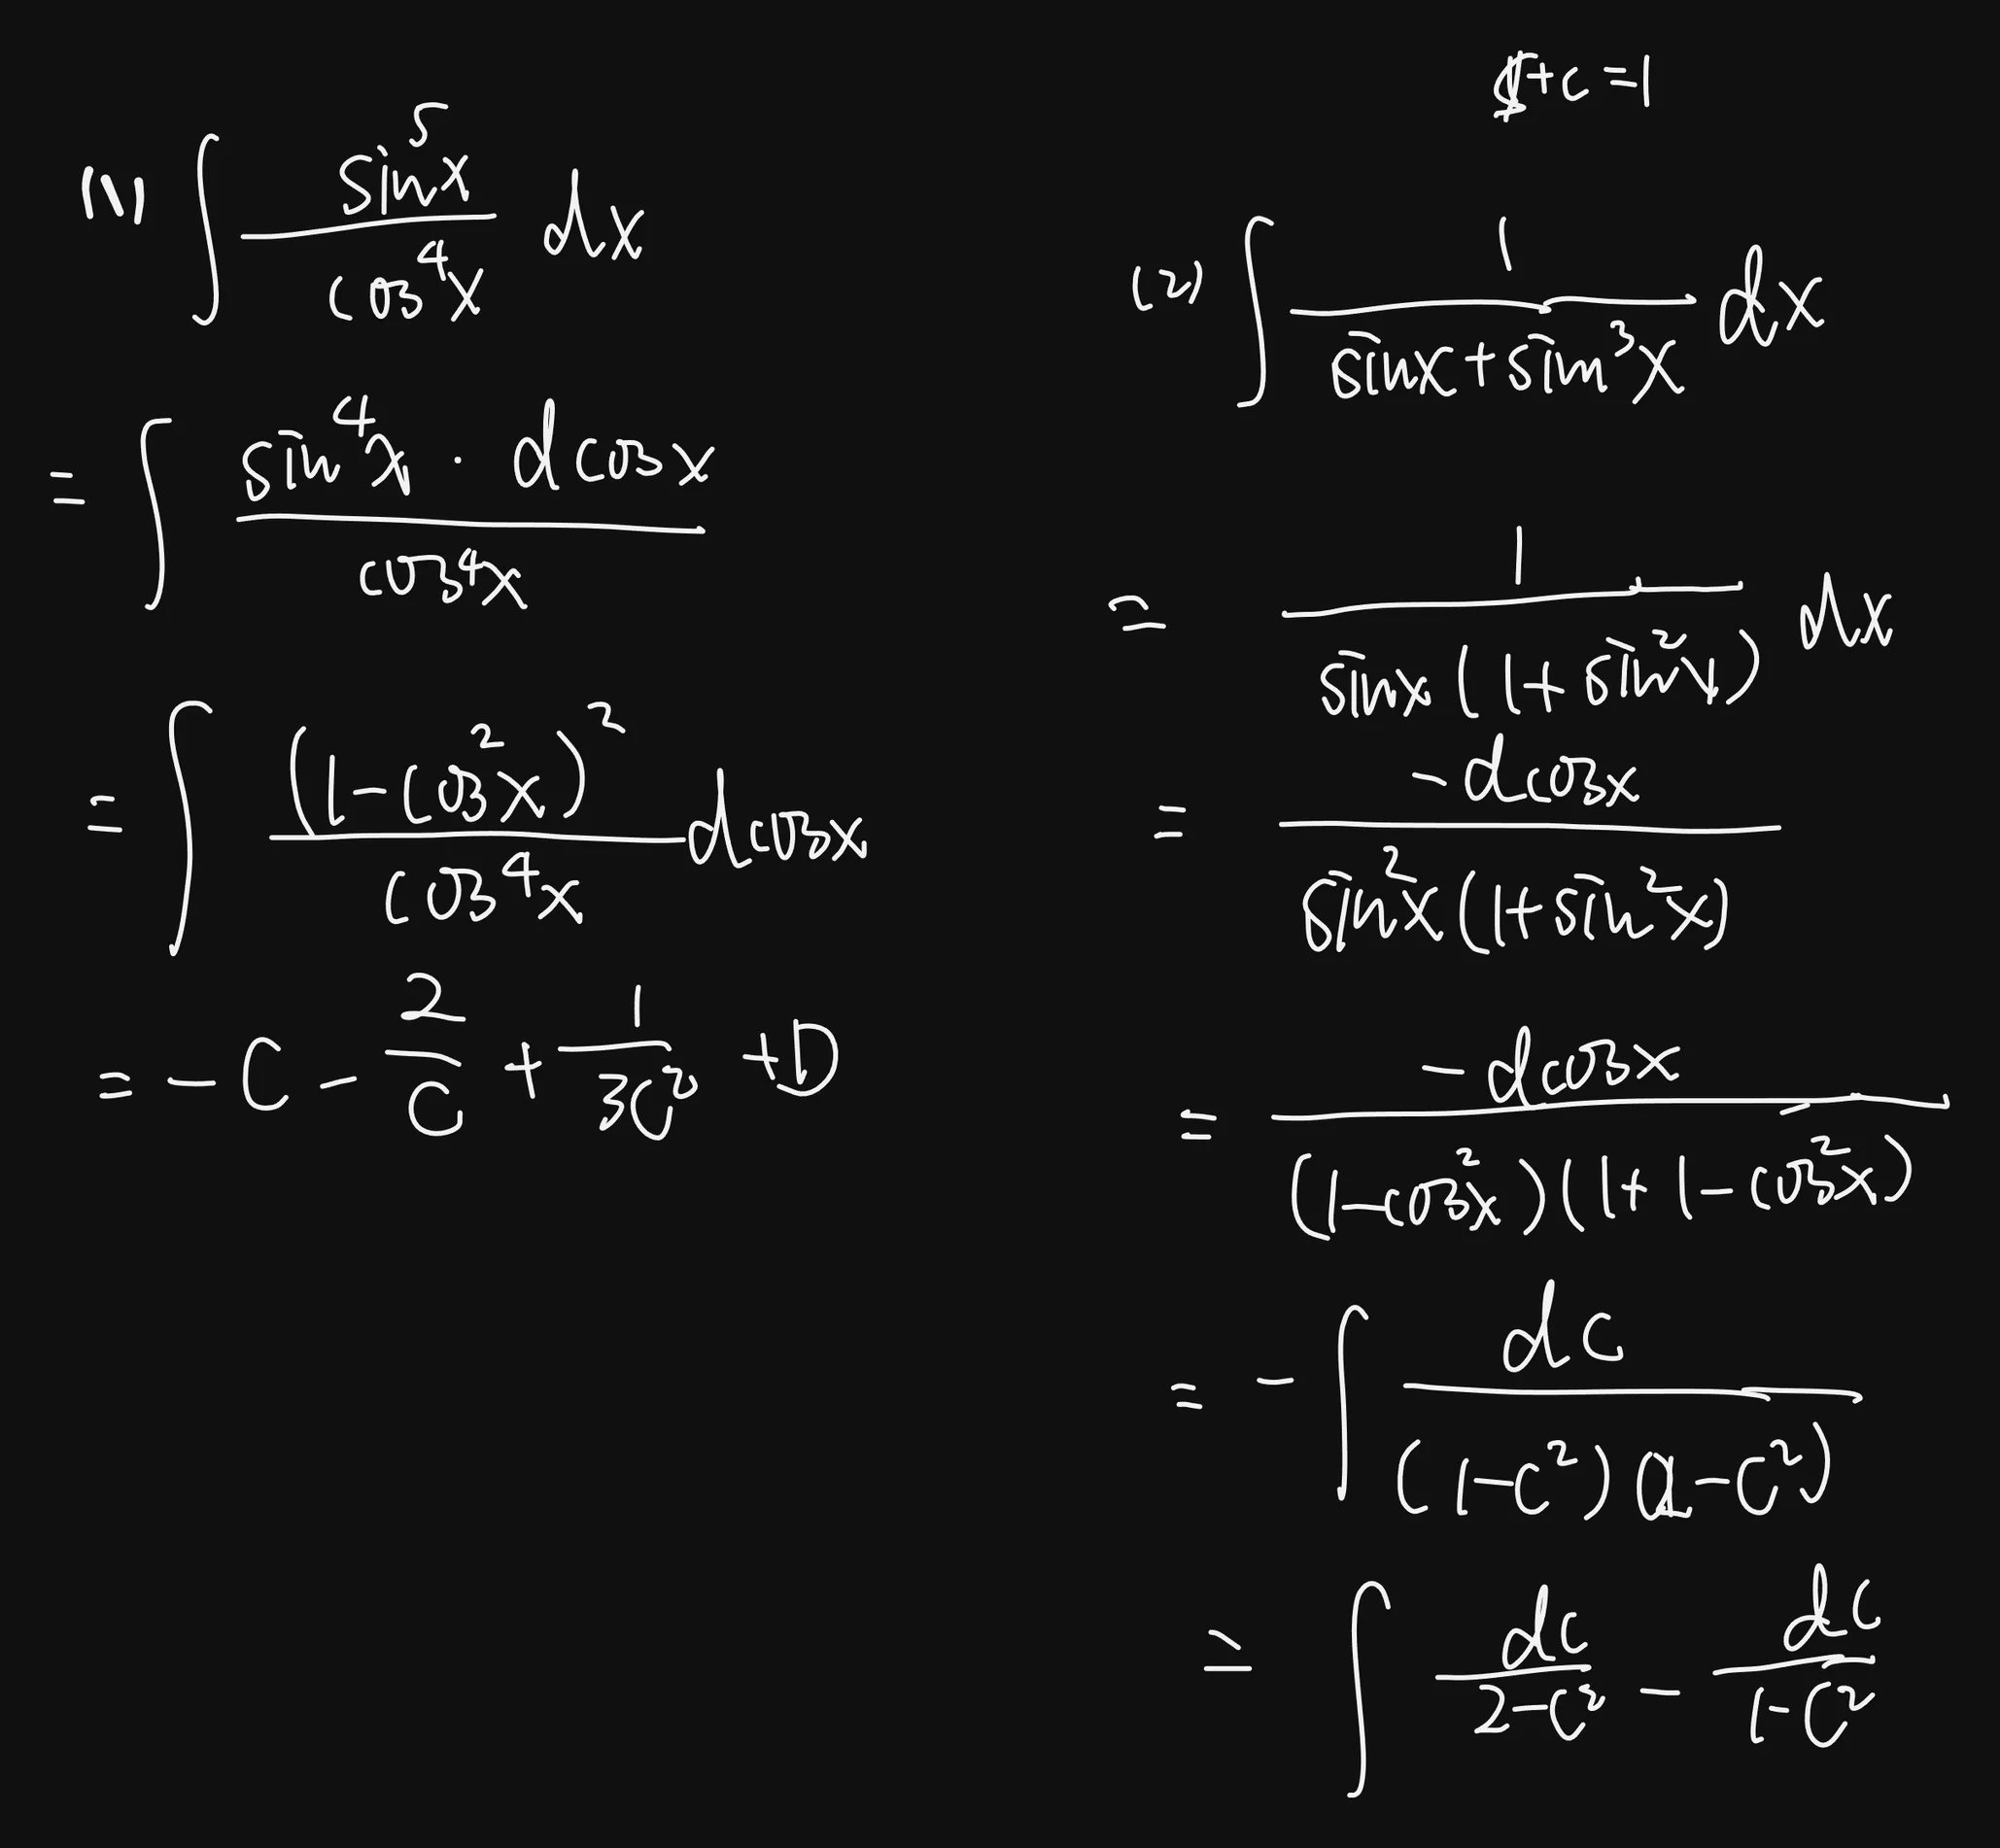 (1) ∫ sin⁵x / cos⁴x dx
= ∫ sin⁴x · dcosx / cos⁴x
= ∫ (1-cos²x)² / cos⁴x dcosx
= -C - 2/C + 1/3C² + D
+c=1
(2) ∫ 1 / sinx+sin³x dx
= 1 / sinx(1+sin²x) dx
= -dcosx / sin²x(1+sin²x)
= -dcosx / (1-cos²x)(1+1-cos²x)
= -∫ dc / (1-C²)(2-C²)
= ∫ dc / 2-C² - dC / 1-C²